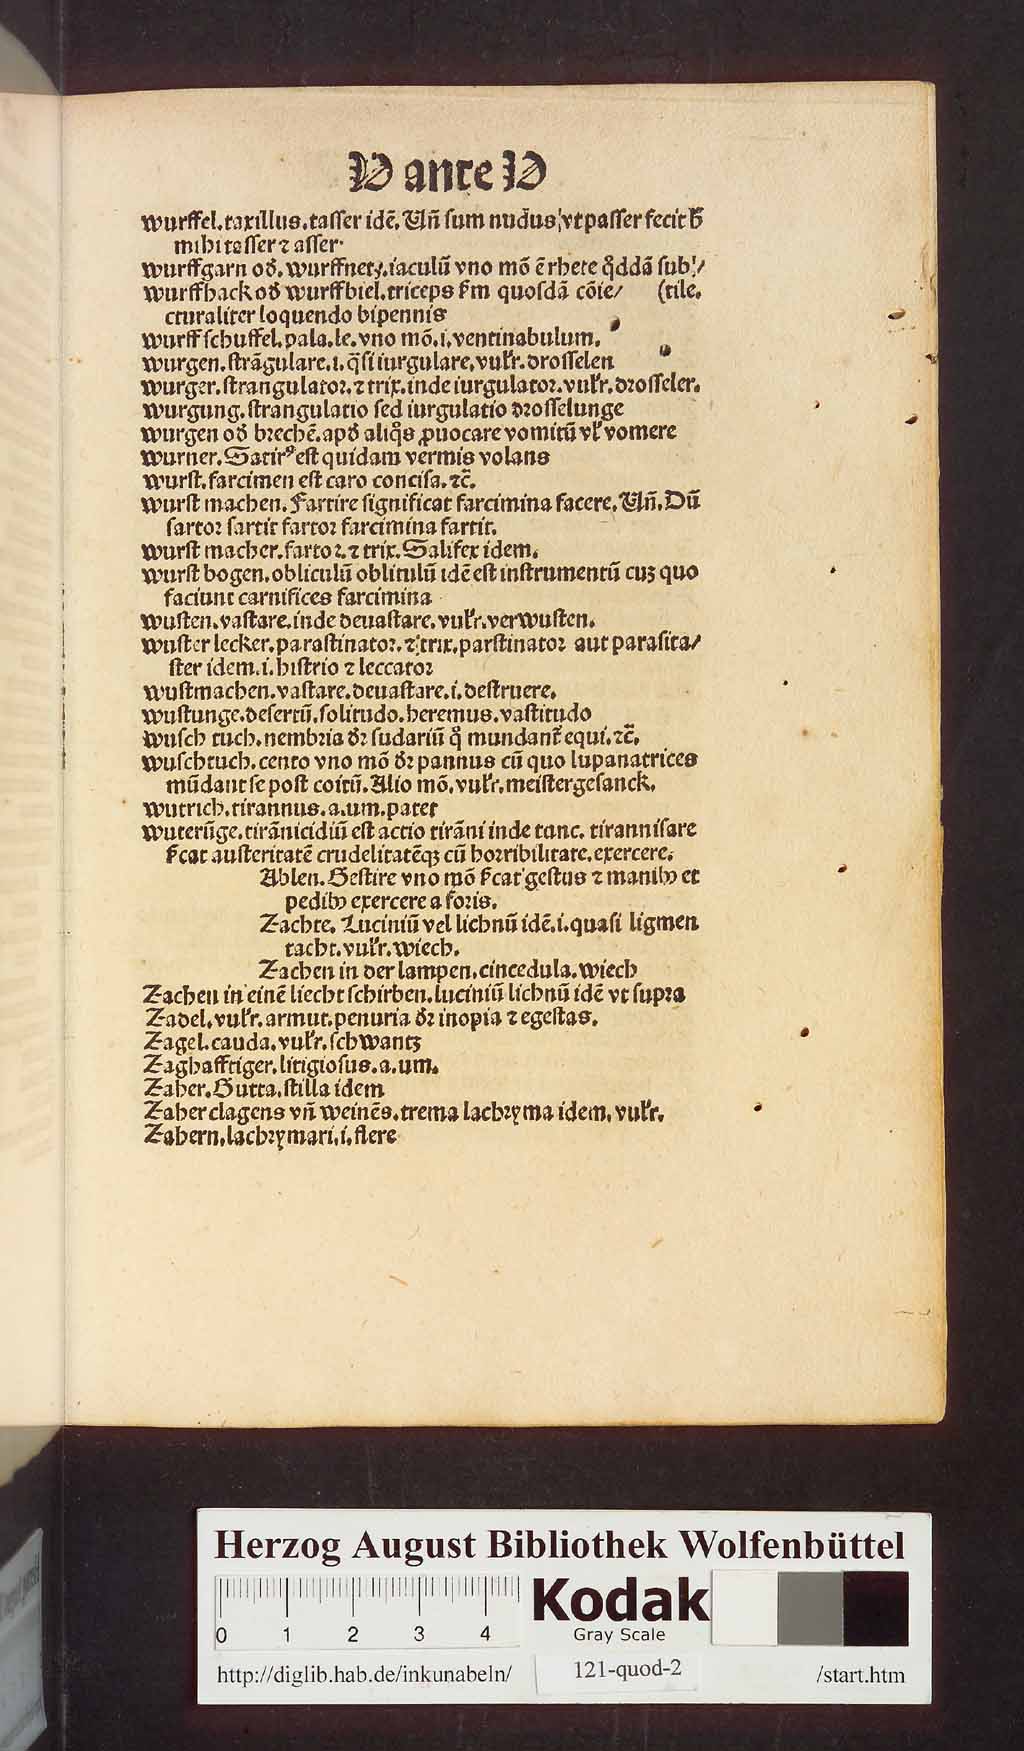 W ante W
wurffel. taxillus. tasser idē. Uñ sum nudus vt passer fecit
mihi tasser ⁊ asser
wurffgarn od̕. wurffnetz. iaculū vno mō ē rhete q̄ddā sub⸗/
wurffhack od̕ wurffbiel. triceps s̄m quosdā cōie/ (tile.
cturaliter loquendo bipennis
wurff schuffel. pala. le. vno mō. i. ventinabulum.
wurgen. strāgulare. i. q̄si iurgulare. vulr̄. drosselen
wurger. strangulator. ⁊ trix. inde iurgulator. vulr̄. drosseler.
wurgung. strangulatio sed iurgulatio drosselunge
wurgen od̕ brechē. apd̕ aliq̄s ꝓuocare vomitū vl̕ vomere
wurner. Satirꝰ est quidam vermis volans
wurst. farcimen est caro concisa. ⁊c̄.
wurst machen. Fartire significat farcimina facere. Uñ. Dū
sartor sartit fartor farcimina fartit.
wurst macher. fartor. ⁊ trix. Salifex idem.
wurst bogen. obliculū oblitulū idē est instrumentū cuꝫ quo
faciunt carnifices farcimina
wusten. vastare. inde deuastare. vulr̄. verwusten.
wuster lecker. parastinator. ⁊ trix. parstinator aut parasita/
ster idem. i. histrio ⁊ leccator
wustmachen. vastare. deuastare. i. destruere.
wustunge. desertū. solitudo. heremus. vastitudo
wusch tuch. nembria dr̄ sudariū q̄ mundant̄ equi. ⁊c̄.
wuschtuch. cento vno mō dr̄ pannus cū quo lupanatrices
mūdant se post coitū. Alio mō. vulr̄. meistergesanck.
wutrich. tirannus. a. um. patet
wuterūge. tirānicidiū est actio tirāni inde tanc. tirannisare
s̄cat austeritatē crudelitatēqꝫ cū horribilitate. exercere.
Zablen. Gestire vno mō s̄cat gestus ⁊ manibꝰ et
pedibꝰ exercere a foris.
Zachte. Luciniū vel lichnū idē. i. quasi ligmen
tacht. vulr̄. wiech.
Zachen in der lampen. cincedula. wiech
Zachen in einē liecht schirben. luciniū lichnū idē vt supra
Zadel. vulr̄. armut. penuria dr̄ inopia ⁊ egestas.
Zagel. cauda. vulr̄. schwantz
Zaghafftiger. litigiosus. a. um.
Zaher. Gutta. stilla idem
Zaher clagens vñ weinēs. trema lachryma idem. vulr̄.
Zahern. lachrymari. i. flere
Herzog August Bibliothek Wolfenbüttel
0 1 2 3 4
Kodak
Gray Scale
http://diglib.hab.de/inkunabeln/ 121-quod-2 /start.htm